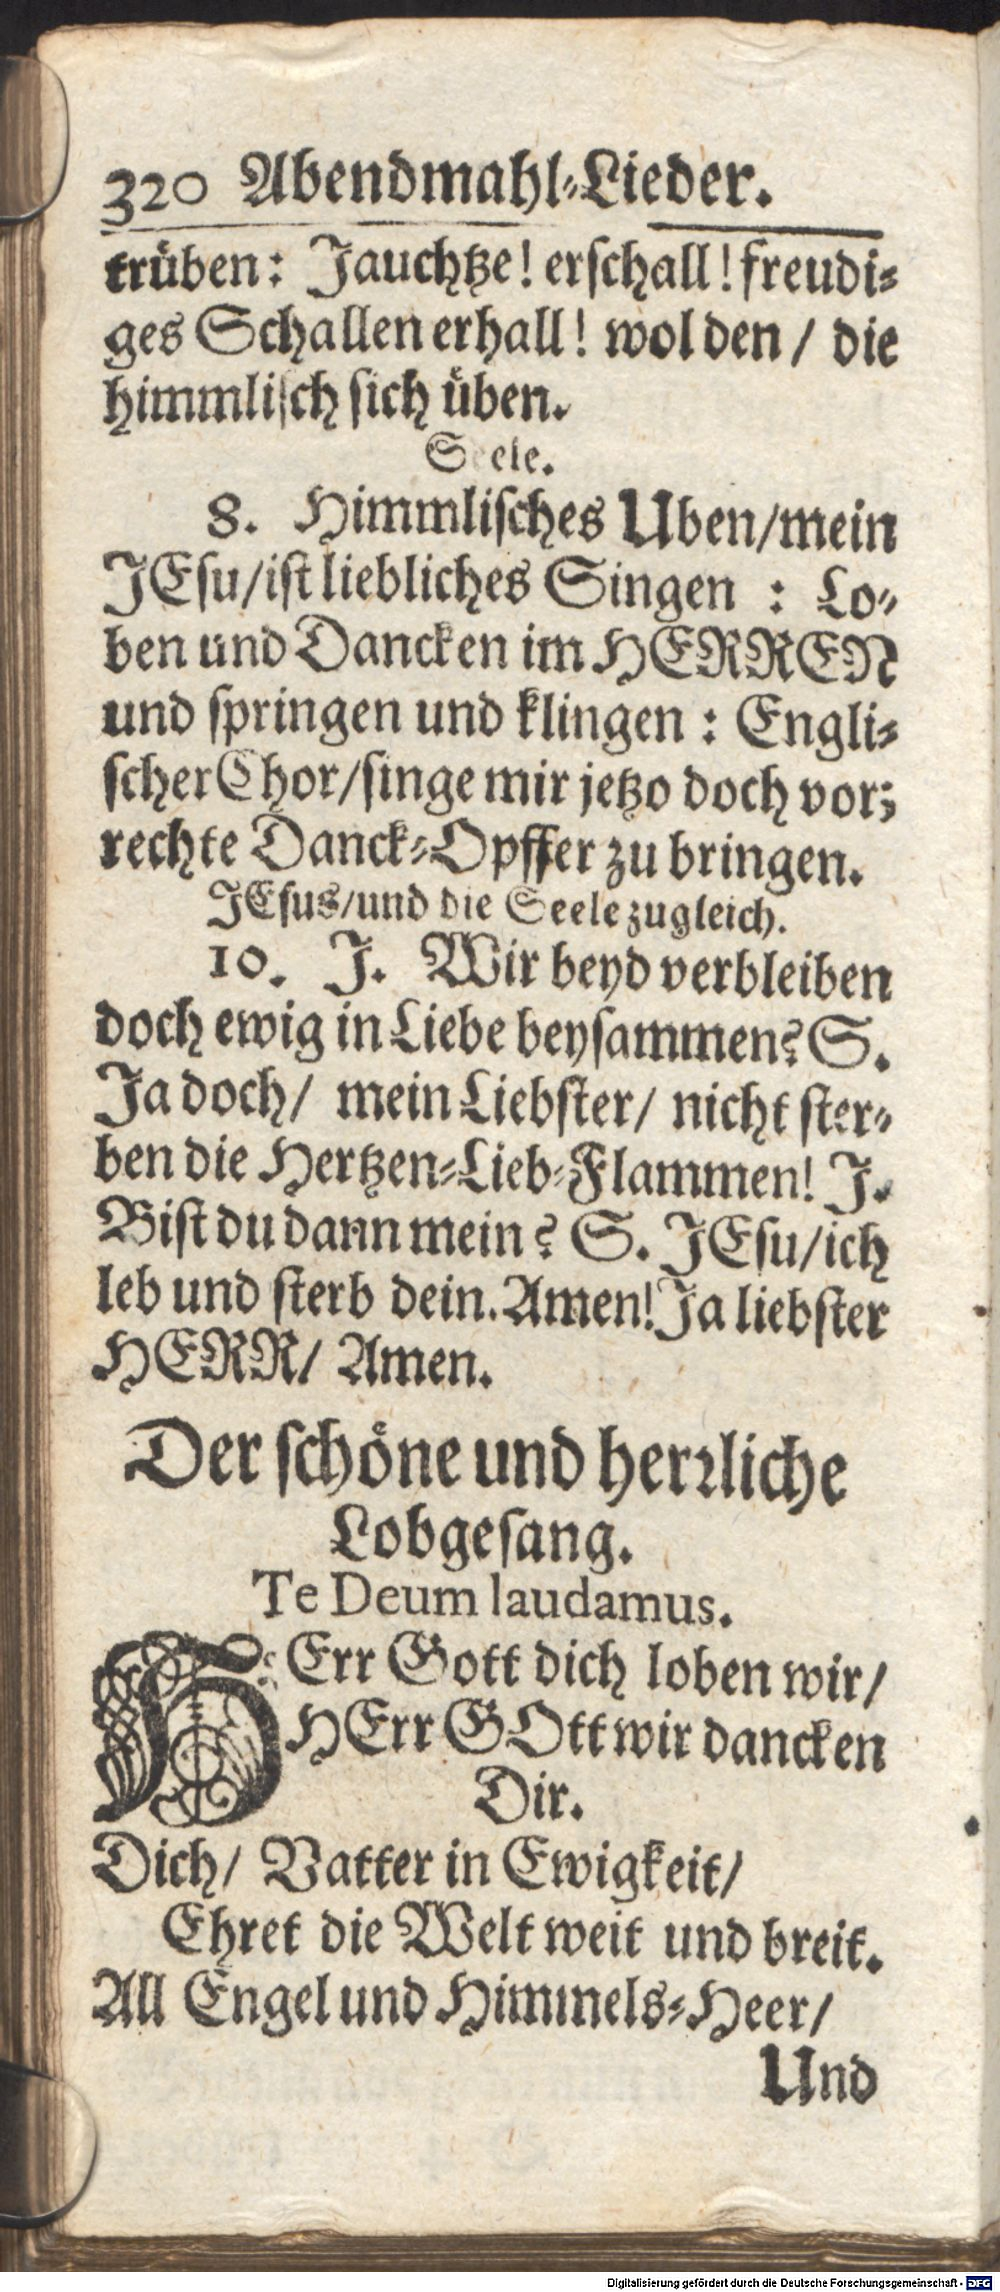 320 Abendmahl-Lieder.
trüben: Jauchtze! erschall! freudi-
ges Schallen erhall! wol den / die
himmlisch sich üben.
Seele.
8. Himmlisches Uben/mein
JEsu/ist liebliches Singen : Lo-
ben und Dancken im HERREN
und springen und klingen : Engli-
scher Chor/singe mir jetzo doch vor;
rechte Danck-Opffer zu bringen.
JEsus/und die Seele zugleich.
10. J. Wir beyd verbleiben
doch ewig in Liebe beysammen? S.
Ja doch/ mein Liebster/ nicht ster-
ben die Hertzen-Lieb-Flammen! J.
Bist du dann mein? S. JEsu/ich
leb und sterb dein. Amen! Ja liebster
HERR/ Amen.
Der schöne und herrliche
Lobgesang.
Te Deum laudamus.
HErr Gott dich loben wir/
HErr GOtt wir dancken
Dir.
Dich/ Vatter in Ewigkeit/
Ehret die Welt weit und breit.
All Engel und Himmels-Heer/
Und
Digitalisierung gefördert durch die Deutsche Forschungsgemeinschaft - DFG